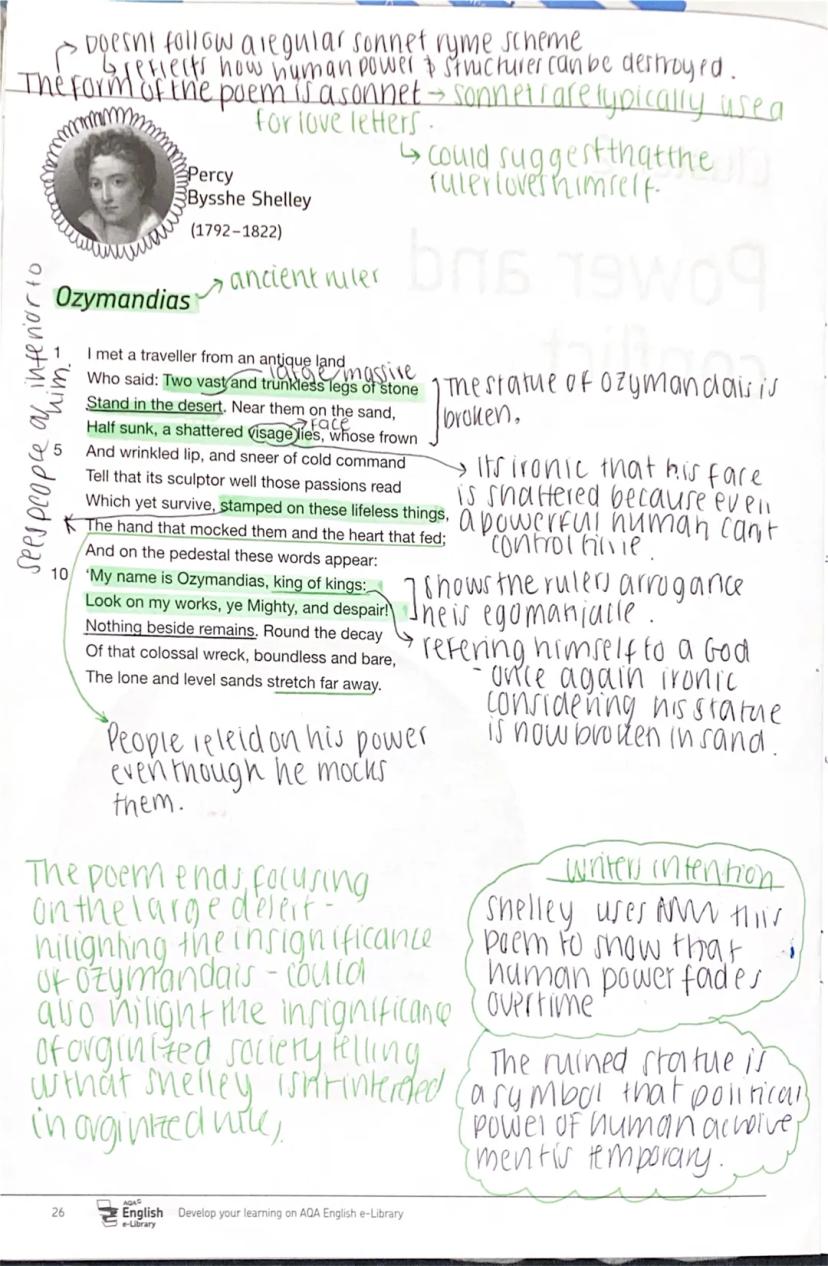 Doesnt follow a regular sonnet ryme scheme
reflects how human power & structures can be destroyed.
The form of the poem is a sonnet → sonnets are typically used
for love letters.
could suggest that the
ruler loves himself.
Percy
Bysshe Shelley
(1792–1822)
ancient ruler
Ozymandias
sees people as inferior to
him.
1 I met a traveller from an antique land
large/massive
Who said: Two vast and trunkless legs of stone
Stand in the desert. Near them on the sand,
face
Half sunk, a shattered visage lies, whose frown
5 And wrinkled lip, and sneer of cold command
Tell that its sculptor well those passions read
Which yet survive, stamped on these lifeless things,
The hand that mocked them and the heart that fed;
And on the pedestal these words appear:
10 'My name is Ozymandias, king of kings:
Look on my works, ye Mighty, and despair!
Nothing beside remains. Round the decay
Of that colossal wreck, boundless and bare,
The lone and level sands stretch far away.
The statue of Ozymandais is
broken.
Its ironic that his face
is shattered because even
a powerful human cant
control time.
shows the rulers arrogance
he is egomaniacle.
refering himself to a God
- once again ironic
considering his statue
is now broken in sand.
People releid on his power
even though he mocks
them.
The poem ends focusing
on the large desert -
hilighting the insignificance
of ozymandais - could
also hilight the insignificance
of orginized society telling
us that Shelley isnt intersted
in orginized rule,
writers intention
Shelley uses this
poem to show that
human power fades
overtime
The ruined statue is
a symbol that political
power of human achive
ment is temporary.
26
AQA
English
e-Library
Develop your learning on AQA English e-Library